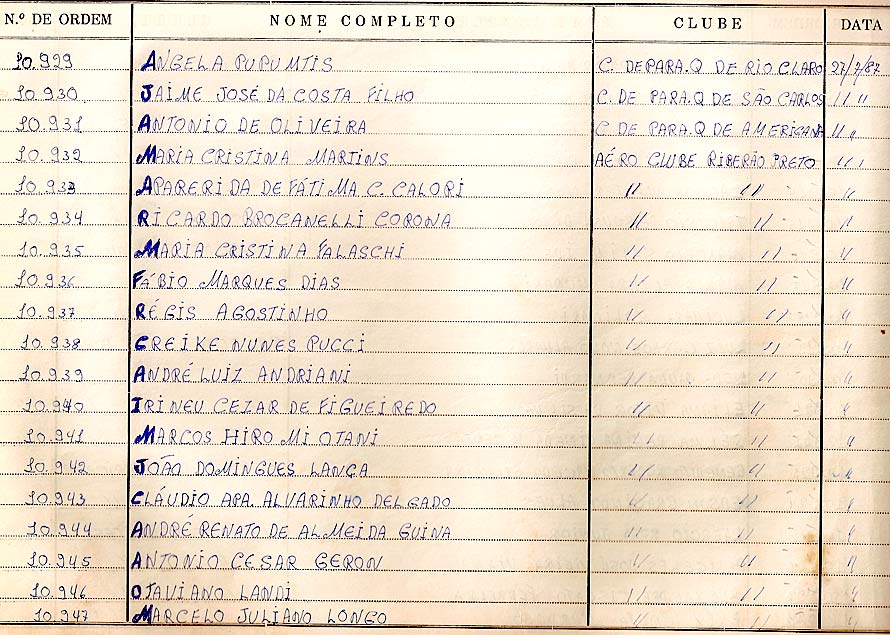 N.º DE ORDEM NOME COMPLETO CLUBE DATA
10.929 ANGELA PUPUMTIS C. DE PARA.Q DE RIO CLARO 27/7/87
10.930 JAIME JOSÉ DA COSTA FILHO C. DE PARA.Q DE SÃO CARLOS " "
10.931 ANTONIO DE OLIVEIRA C. DE PARA.Q DE AMERICANA " "
10.932 MARIA CRISTINA MARTINS AÉRO CLUBE RIBERÃO PRETO " "
10.933 APARERIDA DE FÁTIMA C. CALORI " " "
10.934 RICARDO BROCANELLI CORONA " " "
10.935 MARIA CRISTINA FALASCHI " " "
10.936 FÁBIO MARQUES DIAS " " "
10.937 RÉGIS AGOSTINHO " " "
10.938 GREIKE NUNES PUCCI " " "
10.939 ANDRÉ LUIZ ANDRIANI " " "
10.940 IRINEU CEZAR DE FIGUEIREDO " " "
10.941 MARCOS HIRO MI OTANI " " "
10.942 JOÃO DOMINGUES LANÇA " " "
10.943 CLÁUDIO APA. ALVARINHO DELGADO " " "
10.944 ANDRÉ RENATO DE ALMEIDA GUINA " " "
10.945 ANTONIO CESAR GERON " " "
10.946 OTAVIANO LANDI " " "
10.947 MARCELO JULIANO LONGO " " "